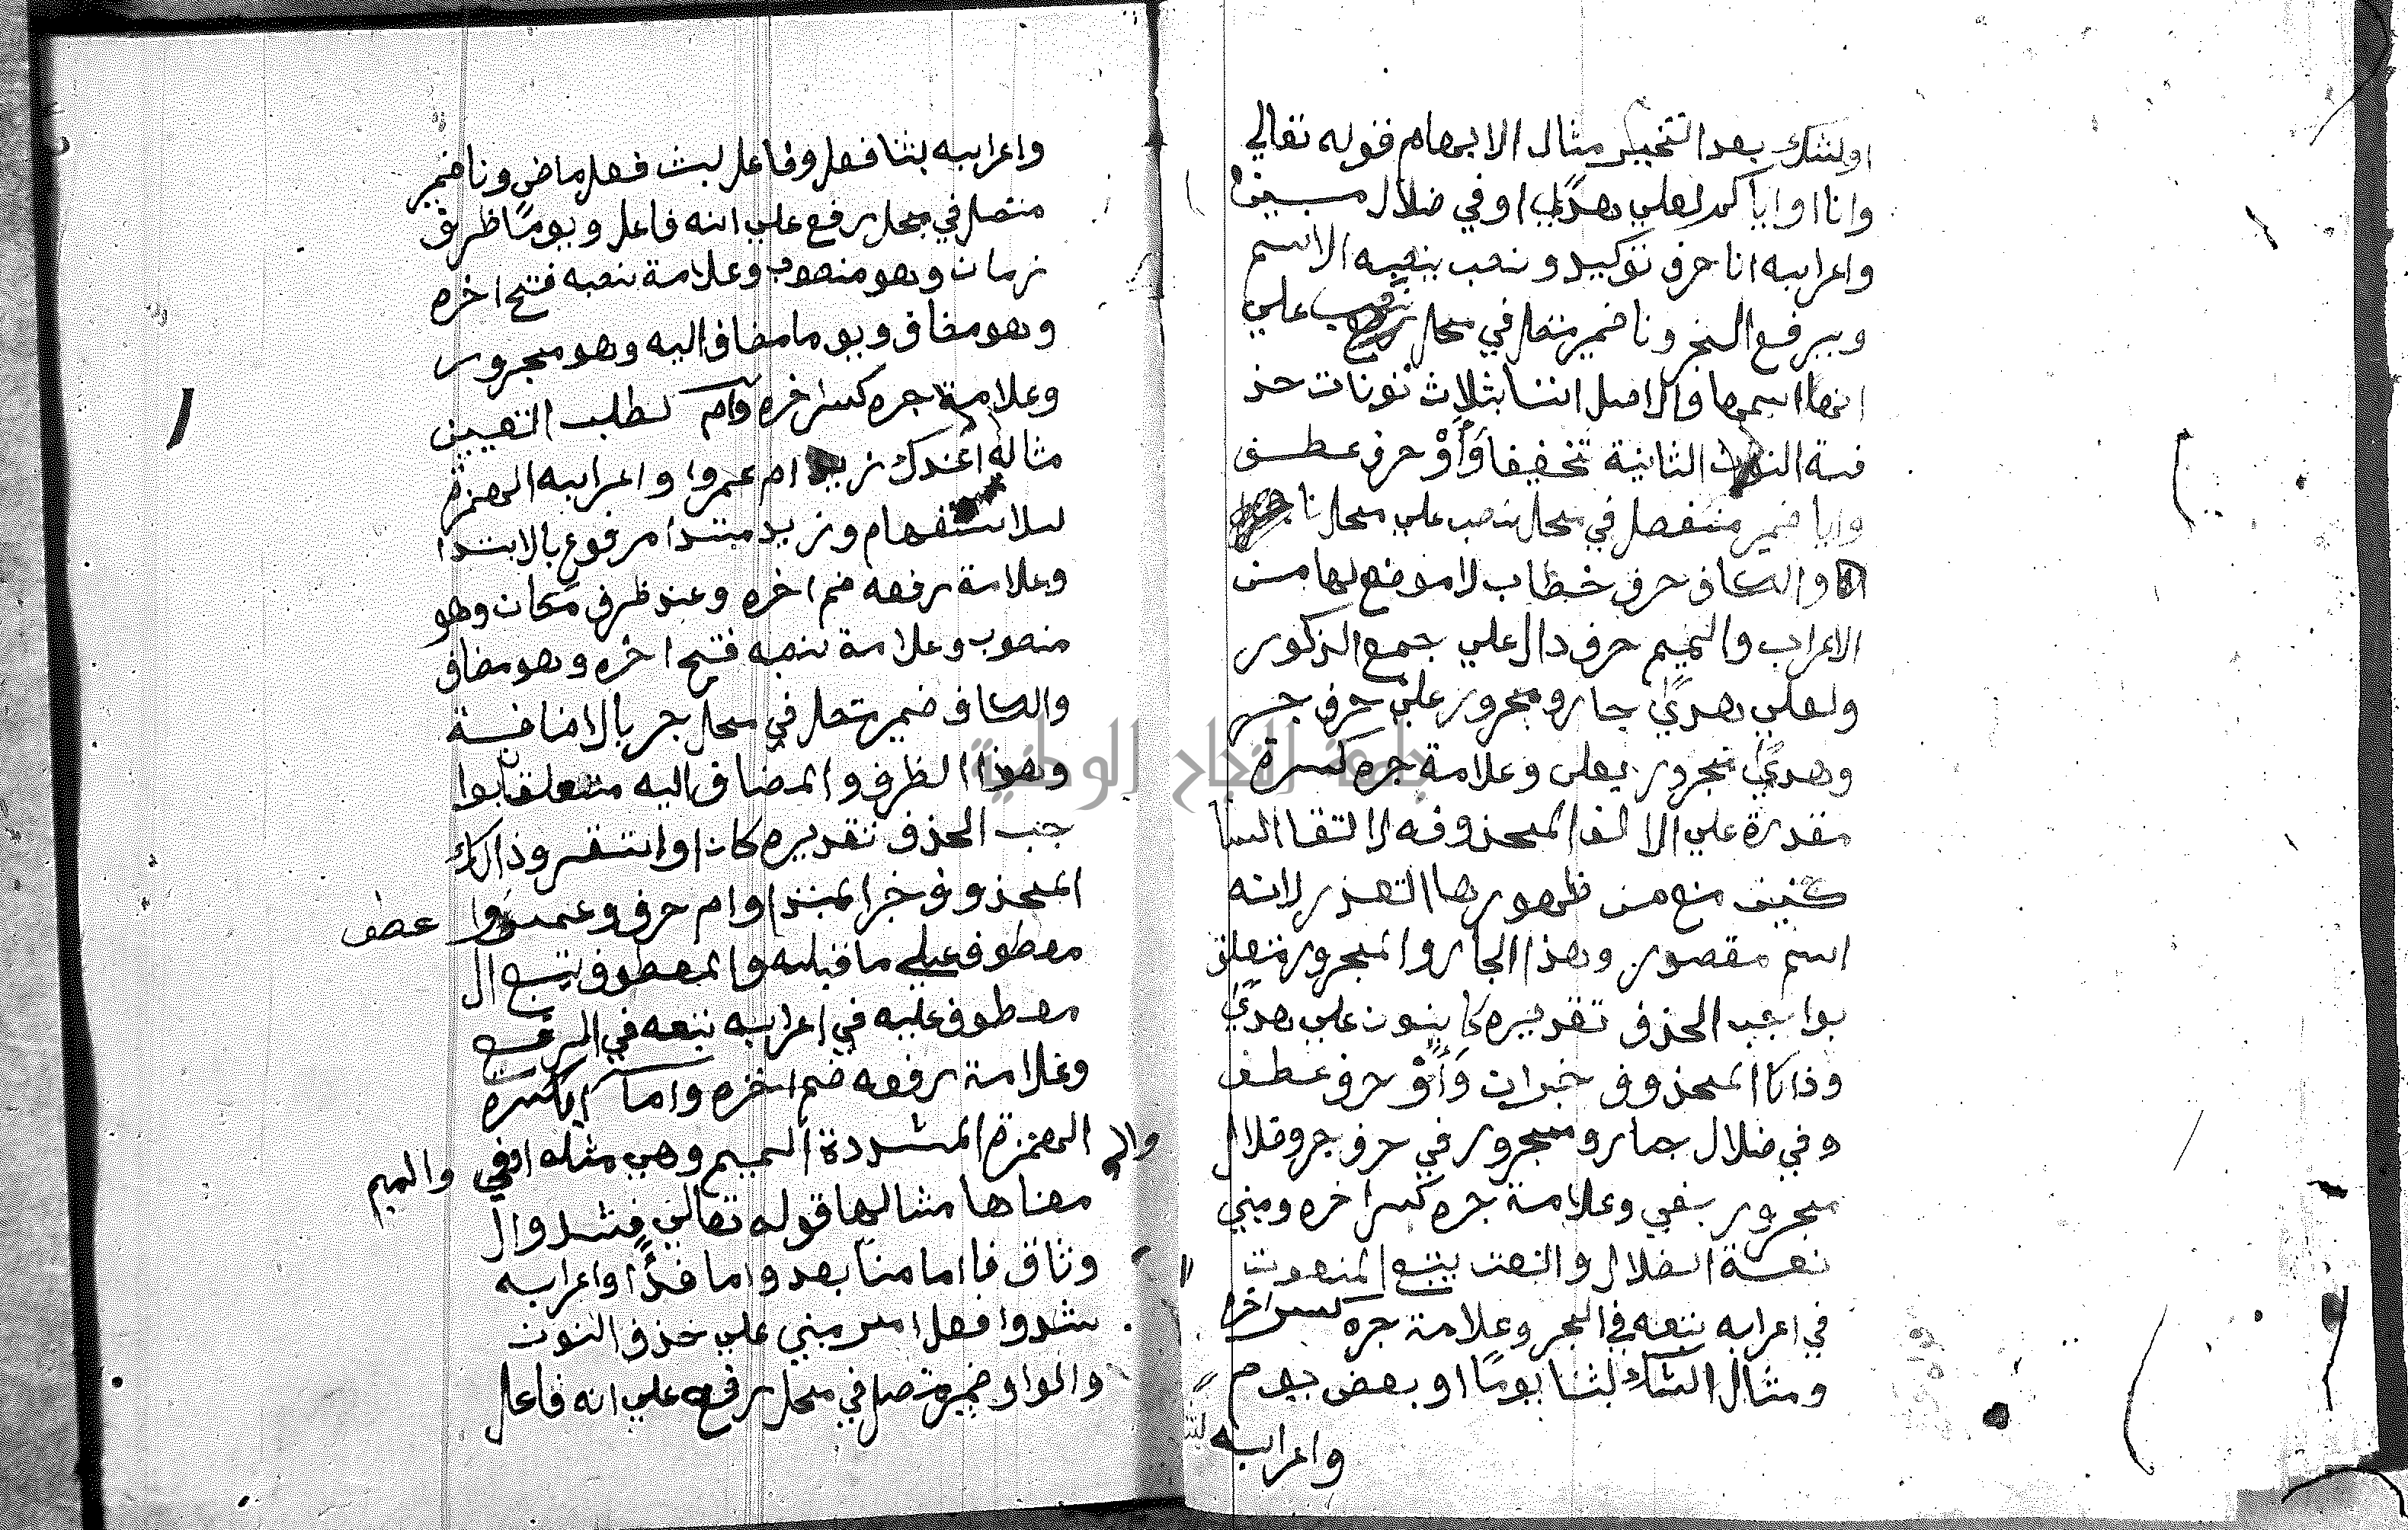 اولشك بعد التخيير مثال الابهام قوله تعالي
وانا او اياكم لعلي هدًي او في ضلال مبين
واعرابه انا حرف توكيد ونصب ينصب الاسم
ويرفع الخبر ونا ضمير متصل في محل نصب علي
انها اسمها والاصل اننا بثلاث نونات حذ
فة النون الثانية تخفيفا وَأَوْ حرف عطف
وايا ضمير منفصل في محل نصب علي محل نا
والكاف حرف خطاب لا موضع لها من
الاعراب والميم حرف دال علي جمع الذكور
ولعلي هدًي جار ومجرور علي حرف جر
وهدًي مجرور بعلى وعلامة جره كسرة
مقدرة علي الالف المحذوفه لالتقا السا
كنين منع من ظهورها التعذر لانه
اسم مقصور وهذا الجار والمجرور متعلق
بواجب الحذف تقديره كاينون علي هدًي
وذاكا المحذوف خبران وَأَوْ حرف عطف
وفي ضلال جار ومجرور في حرف جر وضلال
مجرور بفي وعلامة جره كسر اخره ومبني
نعة لضلال والنعت يتبع المنعوت
في اعرابه تبعه في الجر وعلامة جره كسر اخره
ومثال الشك لبثنا يومًا او بعض يوم
واعرابه
واعرابه بثنا فعل وفاعل لبث فعل ماض ونا ضمير
متصل في محل رفع علي انه فاعل ويومًا ظرف
زمان وهو منصوب وعلامة نصبه فتح اخره
وهو مضاف ويوما مضاف اليه وهو مجرور
وعلامة جره كسر اخره وام لطلب التعيين
مثاله اعندك زيد ام عمروا واعرابه الهمزة
للاستفهام وزيد مبتدا مرفوع بالابتدا
وعلامة رفعه ضم اخره وعند ظرف مكان وهو
منصوب وعلامة نصبه فتح اخره وهو مضاف
والكاف ضمير متصل في محل جر بالاضافة
وهذا الظرف والمضاف اليه متعلق بوا
جب الحذف تقديره كان او استقر وذالك
المحذوف خبر المبتدا وام حرف وعمروا عطف
معطوف علي ما قبله والمعطوف يتبع ال
معطوف عليه في اعرابه تبعه في الرفع
وعلامة رفعه ضم اخره واما بكسرة
الهمزة المشددة الميم وهي مثله اوفي والميم
معناها مثالها قوله تعالي فشدوال
وثاق فااما منا بعد واما فدًا واعرابه
شدوا فعل امر مبني علي حذف النون
والواو ضمير متصل في محل رفع علي انه فاعل